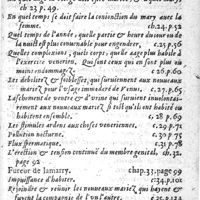 ch 23 p. 49.
En quel temps se doit faire la conionction du mary auec la
femme. ch. 24. p. 52
Quel temps de l'année, quelle partie & heure du iour ou de
la nuict est plus conuenable pour engendrer, c. 25. p. 56
Quelles complexions, quels corps, quelle aage plus habile à
l'exercice venerien, quelles gens qui en sont plus ou
moins endommagez. c 26. p. 60
Les debilitez & foiblesses, qui suruiennent aux nouueaux
mariez pour l'vsage immoderé de Venus. c. 27. p. 65
Laschement de ventre & d'vrine qui suruient
aux nouueaux mariez la
habitent ensemble, c. 28. p. 69
Les stimules ardens aux choses veneriennes, c. 29. p. 71
Pollution nocturne. c. 30. p. 75
Flux spermatique. c. 31. p. 78
L'erection & tension continuë du membre genital, ch. 32.
page 92
Fureur de l'amarry. chap. 33. page 99
Impuissance d'habiter. c. 34. p. 102
Reioindre & reünir les nouueaux mariez qui hayent &
fuyent la compagnie de l'vn l'autre.